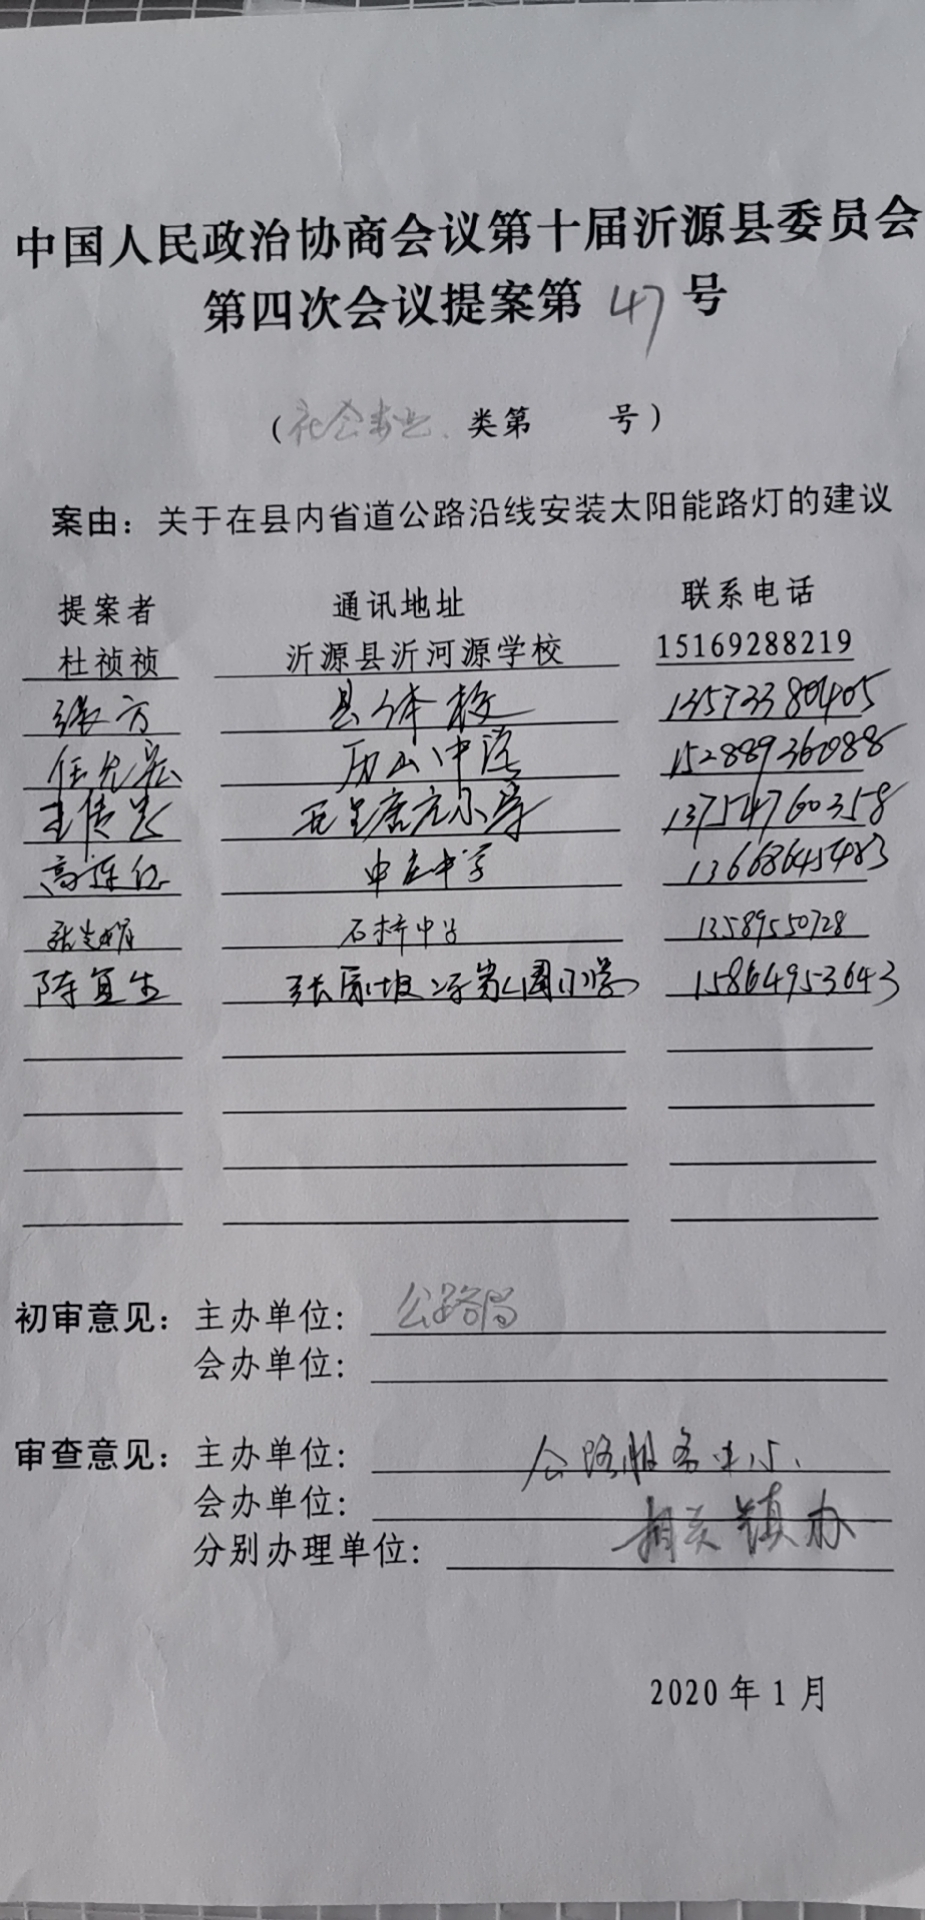 中国人民政治协商会议第十届沂源县委员会
第四次会议提案第 47 号
（社会事业 类第 号）
案由：关于在县内省道公路沿线安装太阳能路灯的建议
提案者 通讯地址 联系电话
杜祯祯 沂源县沂河源学校 15169288219
张方 县体校 13573380405
任允宏 历山中学 15288936088
王传 小学 13754760358
高连红 中庄中学 13668645483
张 石桥中学 13589550728
陈宜生 张家坡 小学 15864953643
初审意见：主办单位：公路局
会办单位：
审查意见：主办单位：公路服务中心
会办单位：相关镇办
分别办理单位：
2020 年 1 月